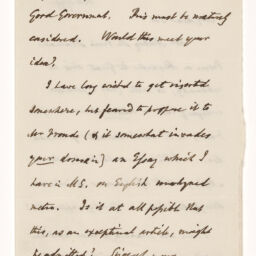 Good Government. This must be maturely
considered. Would this meet your
idea?
I have long wished to get inserted
somewhere, but feared to propose it to
Mr Froude (& it somewhat invades
your domain) an Essay which I
have in M.S. on English unrhymed
metre. Is it at all possible that
this, as an exceptional article, might
be admitted?